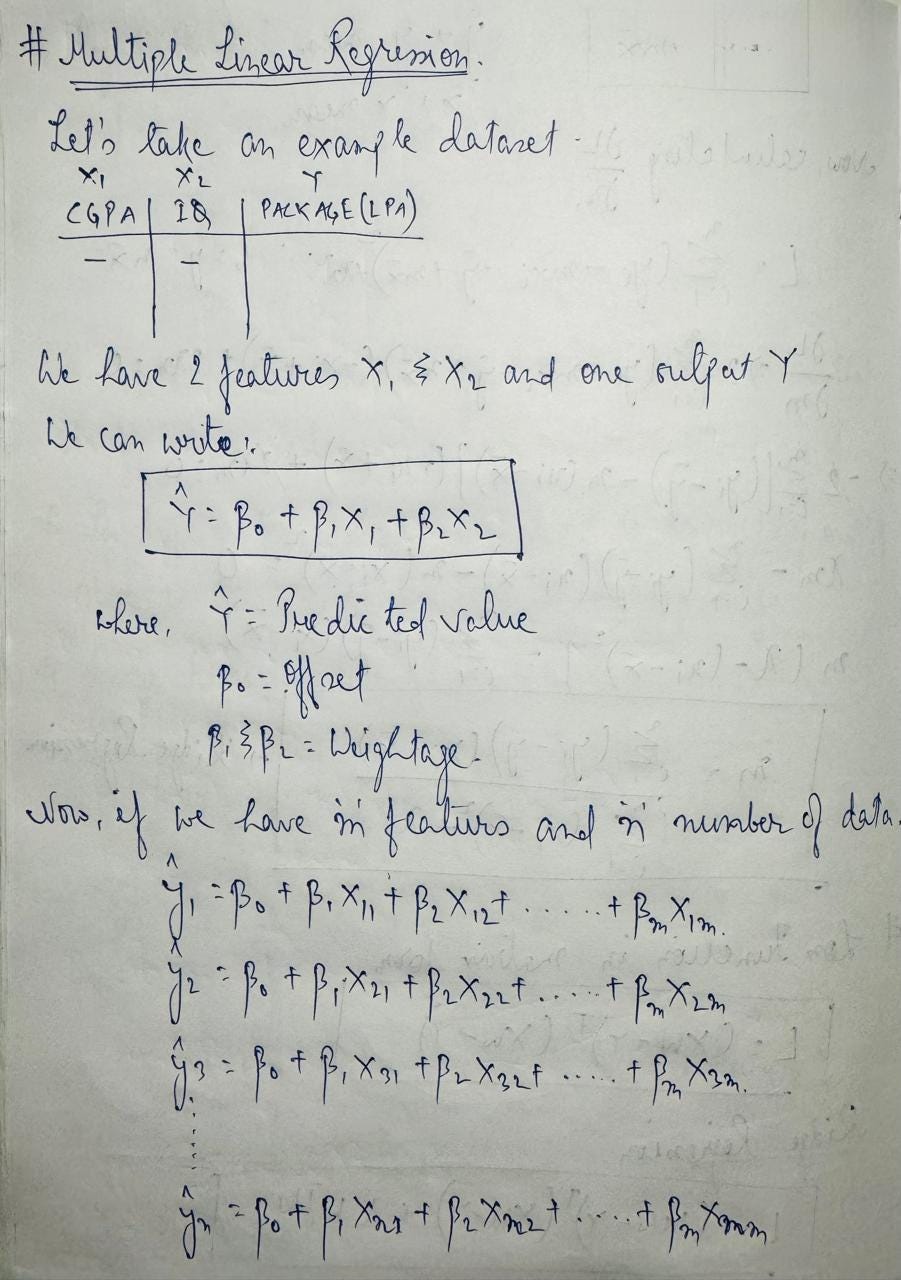 # Multiple Linear Regression.
Let's take an example dataset -
X₁ X₂ Y
CGPA | IQ | PACKAGE (LPA)
– –
We have 2 features X₁ & X₂ and one output Y
We can write:
Ŷ = β₀ + β₁X₁ + β₂X₂
where, Ŷ = Predicted value
β₀ = Offset
β₁ & β₂ = Weightage.
Now, if we have 'm' features and 'n' number of data.
ŷ₁ = β₀ + β₁X₁₁ + β₂X₁₂ + ...... + βₘX₁ₘ.
ŷ₂ = β₀ + β₁X₂₁ + β₂X₂₂ + ..... + βₘX₂ₘ
ŷ₃ = β₀ + β₁X₃₁ + β₂X₃₂ + ..... + βₘX₃ₘ.
ŷₙ = β₀ + β₁Xₙ₁ + β₂Xₙ₂ + ..... + βₘXₙₘ